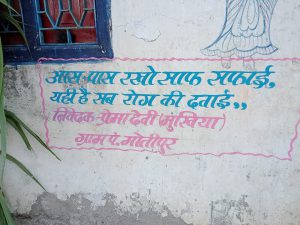 आस-पास रखो साफ सफाई,
यही है सब रोग की दवाई,,
निवेदक- प्रेमा देवी (मुखिया)
ग्राम पं. मोतीपुर